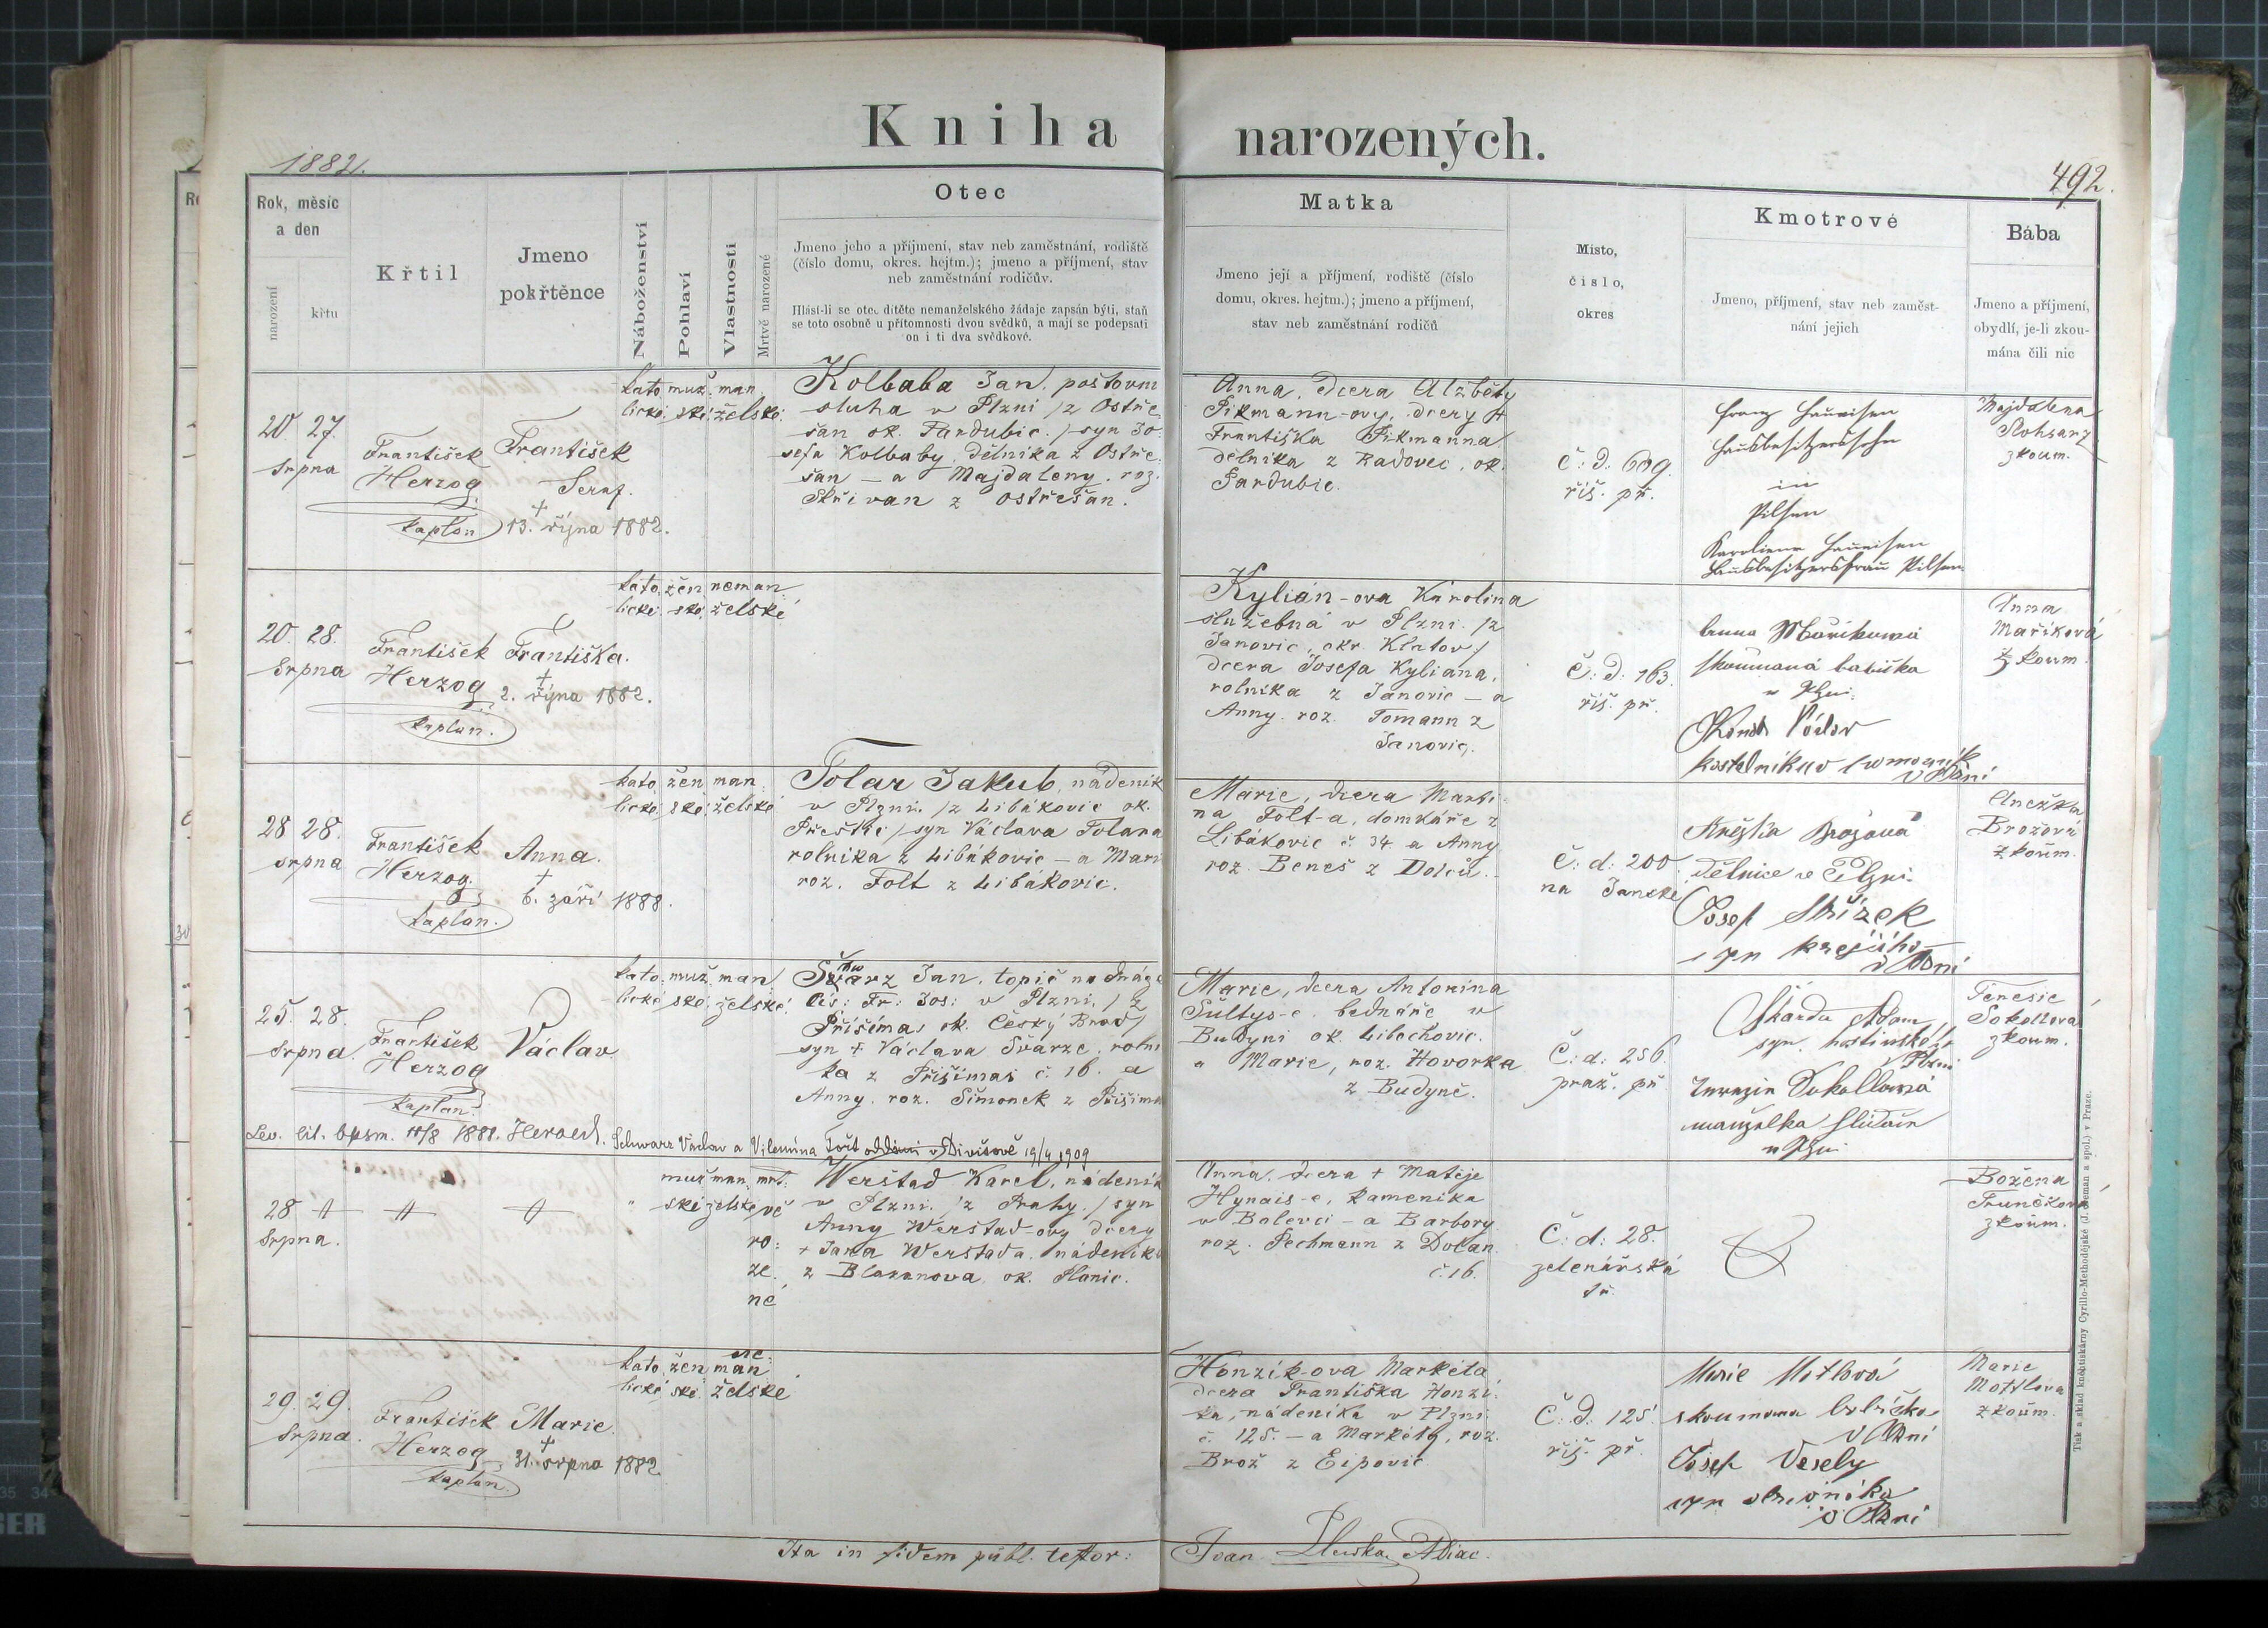 Kniha narozených.
1882.
492.
Rok, měsíc
a den
narození
křtu
Křtil
Jmeno
pokřtěnce
Náboženství
Pohlaví
Vlastnosti
Mrtvě narozené
Otec
Jmeno jeho a příjmení, stav neb zaměstnání, rodiště
(číslo domu, okres. hejtm.); jmeno a příjmení, stav
neb zaměstnání rodičův.
Hlásí-li se otec dítěte nemanželského žádaje zapsán býti, staň
se toto osobně u přítomnosti dvou svědků, a mají se podepsati
on i ti dva svědkové.
Matka
Jmeno její a příjmení, rodiště (číslo
domu, okres. hejtm.); jmeno a příjmení,
stav neb zaměstnání rodičů
Místo,
číslo,
okres
Kmotrové
Jmeno, příjmení, stav neb zaměst-
nání jejich
Bába
Jmeno a příjmení,
obydlí, je-li zkou-
mána čili nic
20. 27.
Srpna
František
Herzog
kaplan
František
Seraf.
+
13. října 1882.
kato muž. man
lické. ské. želské.
Kolbaba Jan, poštovní
sluha v Plzni /z Ostře
šan ok. Pardubic. / syn Jo
sefa Kolbaby, dělníka z Ostře
šan – a Majdaleny. roz.
Skřivan z Ostřešan.
Anna, dcera Alžběty
Pikmann-ovy, dcery +
Františka Pikmanna
dělníka z Radovec, ok.
Pardubic.
č: d: 609.
říš. př.
Franz Haueisen
Hausbesitzerssohn
in
Pilsen
Karoliena Haueisen
Hausbesitzersfrau Pilsen.
Majdalena
zkoum.
20. 28.
Srpna
František
Herzog
kaplan.
Františka.
+
2. října 1882.
kato. žen neman
lické. ské. želské
Kylián-ova Karolina
služebná v Plzni. /z
Janovic, okr Klatov/
dcera Josefa Kyliana,
rolníka z Janovic – a
Anny. roz. Tomann z
Janovic.
č: d: 163.
říš. př.
Anna Maříková
skoumaná babička
v Plzni.
Anna
Maříková
zkoum.
28 28.
srpna
František
Herzog.
kaplan.
Anna.
+
6. září 1888.
kato žen man
lické ské. želské
Tolar Jakub, nádeník
v Plzni. /z Libákovic ok.
Přeštic / syn Václava Tolara
rolníka z Libákovic – a Mari
roz. Folt z Libákovic.
Marie, dcera Marti
na Folt-a, domkáře z
Libákovic č. 34 a Anny
roz. Beneš z Dolců.
č: d: 200.
na Janské
Anežka Brožová
dělnice v Plzni.
Josef Střízek
syn krejčího
v Plzni
Anežka
Brožová
zkoum.
25. 28.
Srpna.
František
Herzog
kaplan.
Václav
kato. muž. man
lické ské. želské.
Švarz Jan, topič na dráze
Cís: Fr: Jos: v Plzni, / z
Přišimas ok. Český Brod/
syn + Václava Švarze, rolní
ka z Přišimas č. 16. a
Anny. roz. Šimonek z Přišimas
Marie, dcera Antonína
Šultys-e, bednáře v
Budyni ok. Libochovic.
a Marie, roz. Hovorka
z Budyně.
č: d: 256.
praž. př
Škarda Adam
syn. hostinského
v Plzni
Terezie Sokollová
manželka
v Plzni
Teresie
Sokollova
zkoum.
Lev. lit. bpsm. 11/8 1888. Herold. Schwarz Václav a Vilemína Tořt oddáni v Divišově 19/4 1909
28
Srpna.
" muž man. mrt.
ské želské vě
ro:
ze.
né
Werstad Karel, nádeník
v Plzni. /z Prahy. / syn
Anny Werstad-ovy dcery
+ Jana Werstada, nádeníka
z Blazanova, ok. Planic.
Anna, dcera + Matěje
Hynais-e, kameníka
v Bolevci – a Barbory
roz. Pechmann z Dolan.
č. 16.
č: d: 28.
zelenářská
tř.
Božena
Trunčková
zkoum.
29. 29.
Srpna.
František
Herzog
kaplan.
Marie.
+
31. srpna 1882
kato žen ne: man
lické. ské. želské
Honzík-ova Markéta
dcera Františka Honzí
ka, nádeníka v Plzni
č. 125. – a Markéty, roz.
Brož z Eipovic
č: d: 125.
říš. př.
Marie Motlová
skoumana babička
v Plzni
Josef Veselý
syn
v Plzni
Marie
Mottlova
zkoum.
Ita in fidem publ. testor: Joan
Tisk a sklad knihtiskárny Cyrillo-Methodějské (J. Zeman a spol.) v Praze.